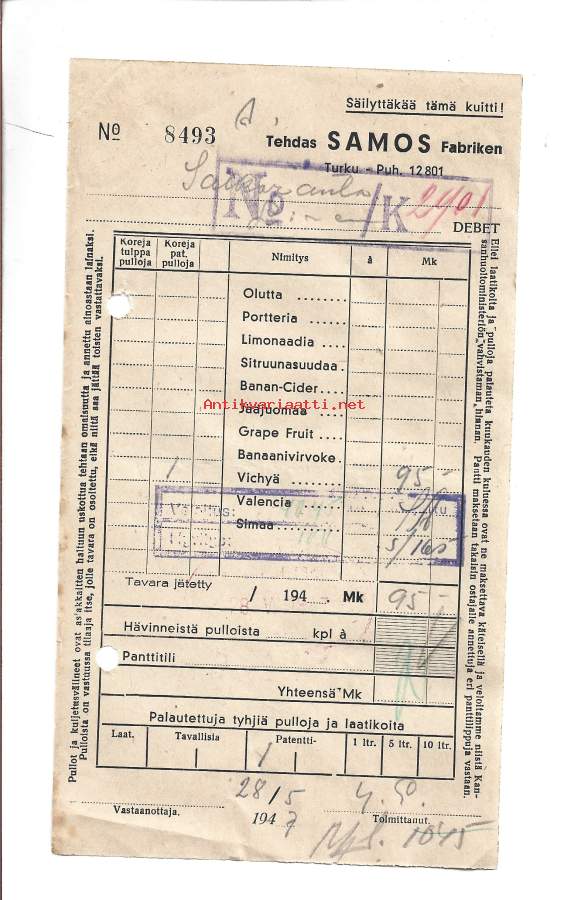 Säilyttäkää tämä kuitti!
Nº 8493
Tehdas SAMOS Fabriken
Turku - Puh. 12 801
Nº /K 2401
DEBET
Koreja tulppa pulloja
Koreja pat. pulloja
Nimitys
à
Mk
Olutta ........
Portteria ......
Limonaadia ....
Sitruunasuudaa.
Banan-Cider....
Antikvariaatti.net
Jääjuomaa ....
Grape Fruit ....
Banaanivirvoke.
1 Vichyä 95 -
Valencia
Simaa
5/165
Tavara jätetty / 194 Mk 95 -
Hävinneistä pulloista kpl à
Panttitili
Yhteensä Mk
Palautettuja tyhjiä pulloja ja laatikoita
Laat. Tavallisia Patentti- 1 ltr. 5 ltr. 10 ltr.
1
28/5
Vastaanottaja. 194 7 Toimittanut.
1045
Pullot ja kuljetusvälineet ovat as'akkaitten haltuun uskottua tehtaan omaisuutta ja annettu ainoastaan lainaksi.
Pulloista on vastuussa tilaaja itse, jolle tavara on osoitettu, eikä niitä saa jättää toisten vastattavaksi.
Ellei laatikoita ja pulloja palauteta kuukauden kuluessa ovat ne maksettava käteisellä ja veloitamme niistä Kan-
sanhuoltoministeriön vahvistaman hinnan. Pantti maksetaan takaisin ostajalle annettuja eri panttilippuja vastaan.